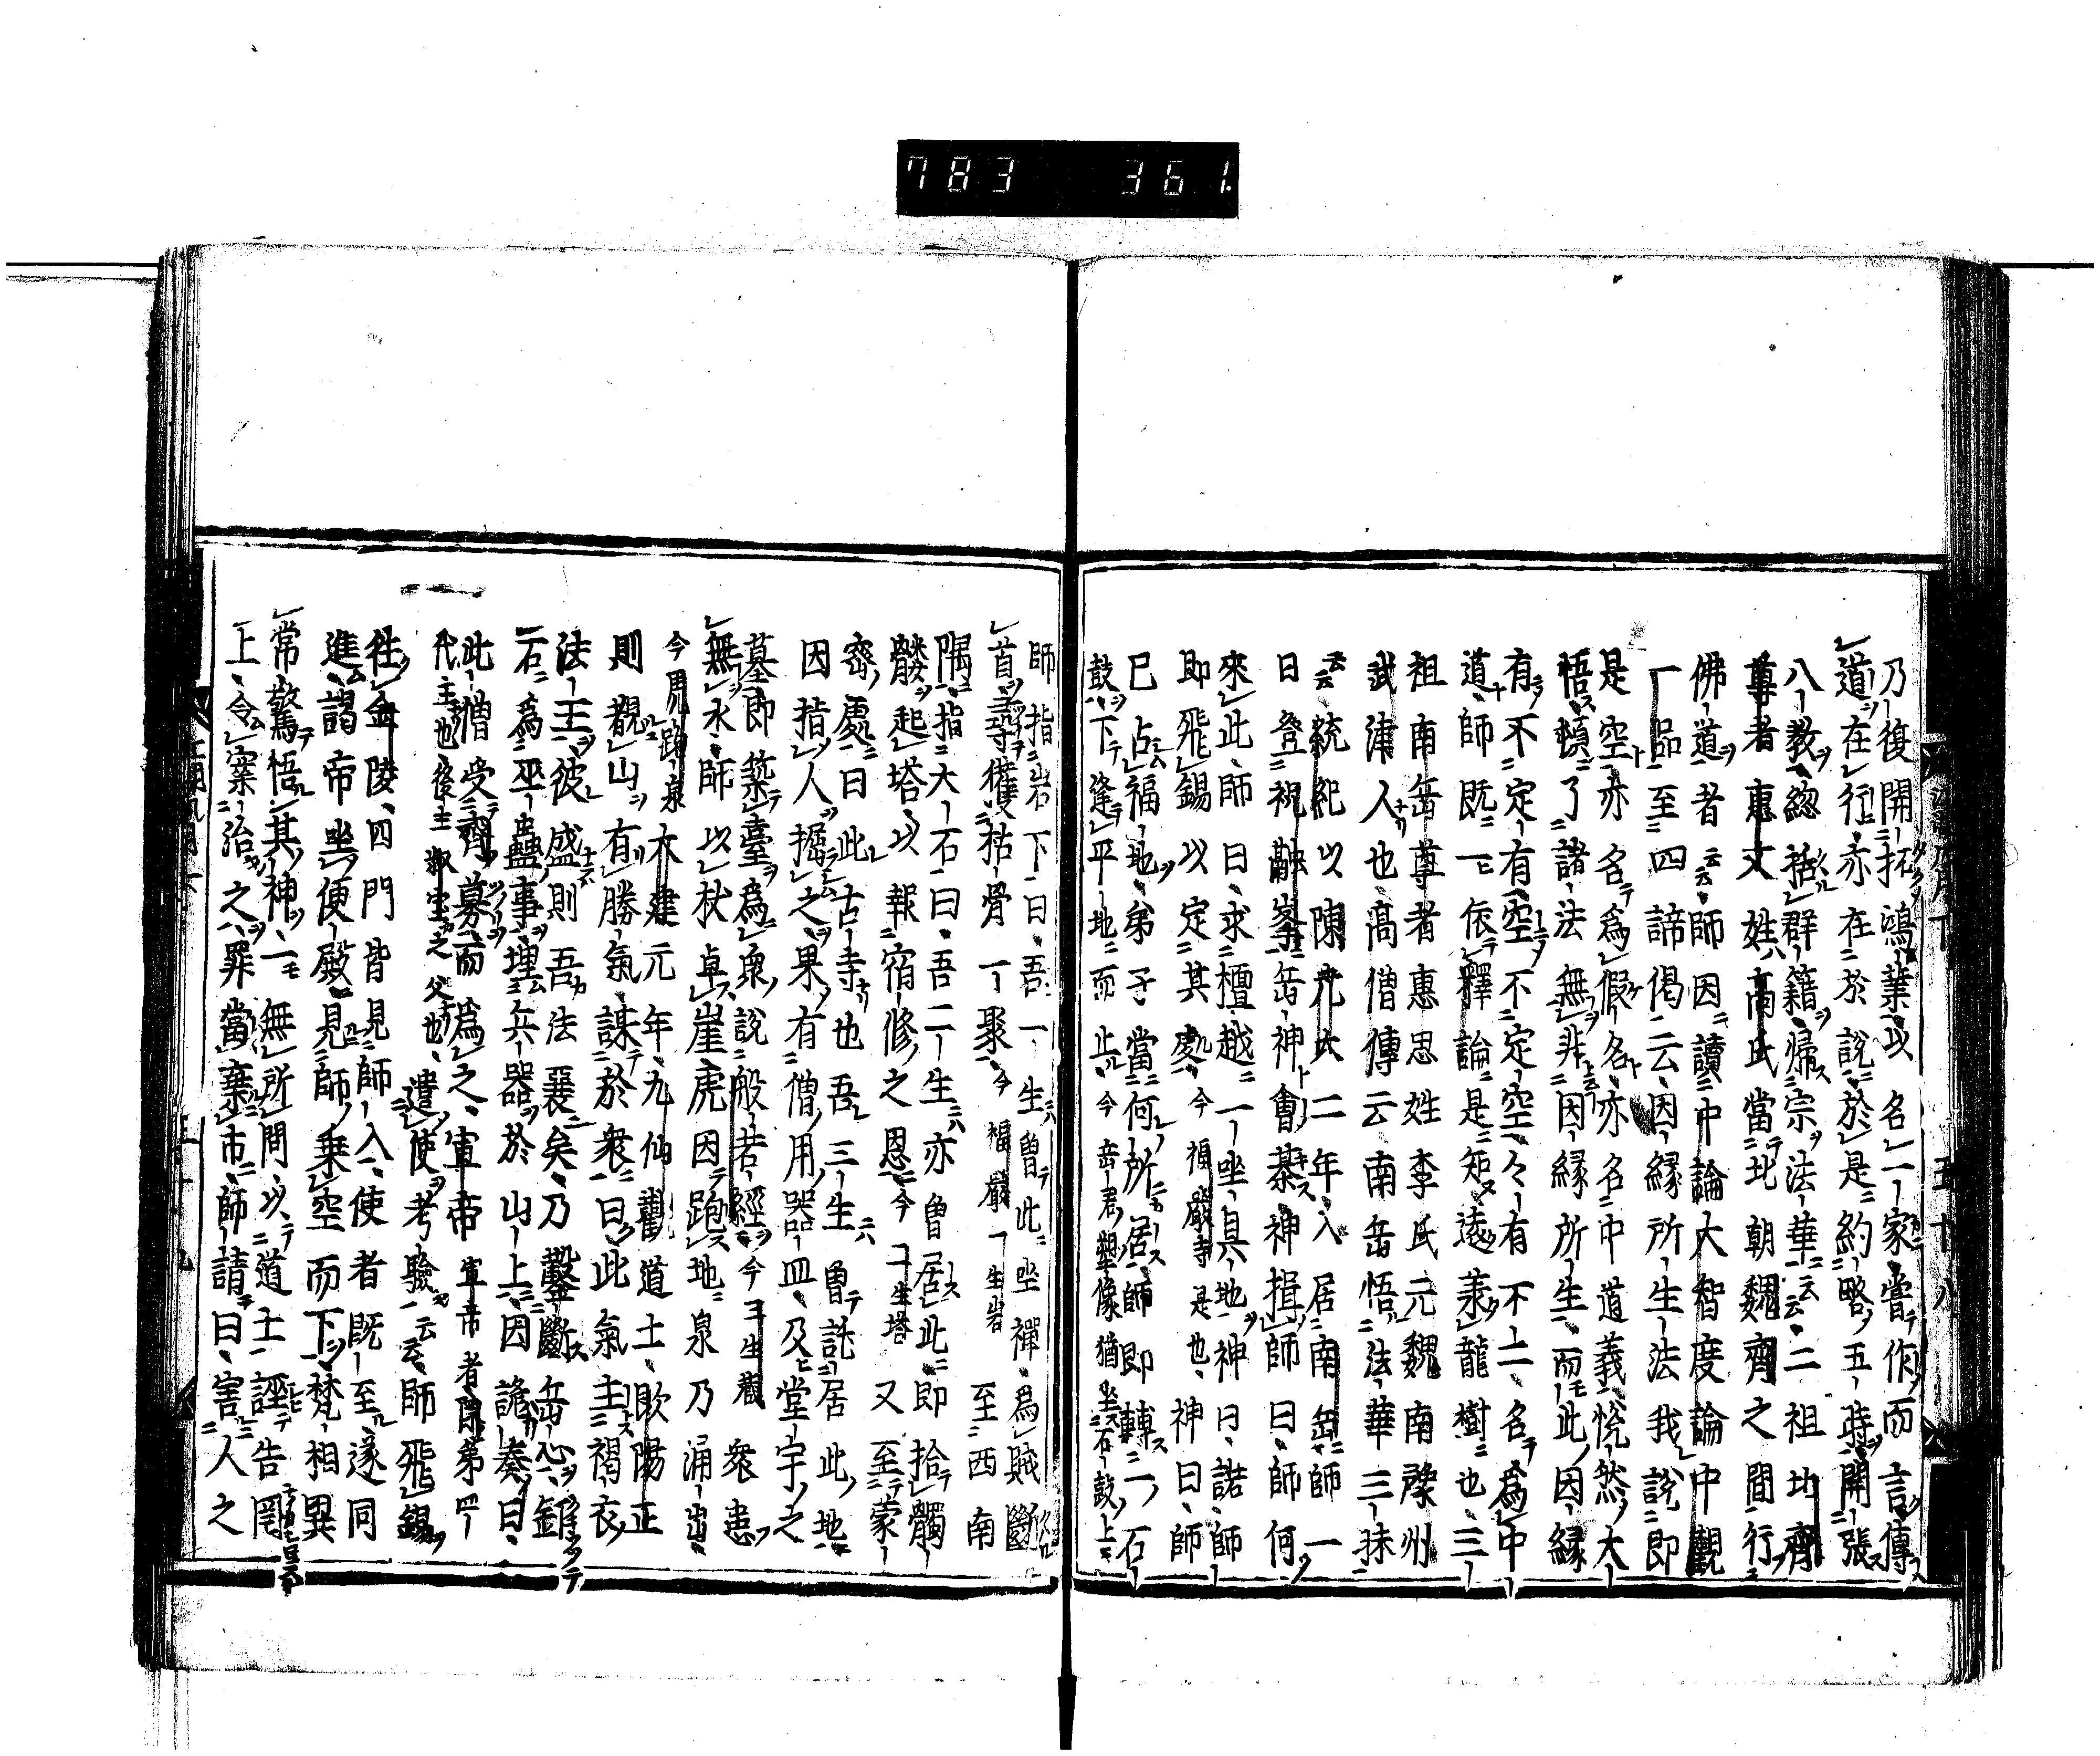 783 361.
乃復開拓鴻業以名一家嘗作而言傳
道在行亦在於說於是約略五時開張
八教總括群籍歸宗法華云云二祖北齊
尊者惠文姓高氏當北朝魏齊之間行
佛道者云云師因讀中論大智度論中觀
一品至四諦偈云因緣所生法我說即
是空亦名為假名亦名中道義恍然大
悟頓了諸法無非因緣所生而此因緣
有不定有空不定空空有不二名為中
道師既一依釋論是知遠承龍樹也三
祖南岳尊者惠思姓李氏元魏南豫州
武津人也高僧傳云南岳悟法華三昧
云云統紀以陳光大二年入居南岳師一
日登祝融峯岳神會棊神揖師曰師何
來此師曰求檀越一坐具地神曰諾師
即飛錫以定其處今福嚴寺是也神曰師
已占福地弟子當何所居師即轉一石
鼓下逢平地而止今岳君塑像猶坐石鼓上
師指岩下曰吾一生曾此坐禪為賊斷
首尋獲枯骨一聚今福嚴一生岩至西南
隅指大石曰吾二生亦曾居此即拾髑
髏起塔以報宿修之恩今二生塔又至蒙
齋處曰此古寺也吾三生曾託居此地
因指人掘之果有僧用器皿及堂宇之
墓即築臺為衆說般若經今三生藏衆患
無水師以杖卓崖虎因跑地泉乃涌出
今虎跑泉大建元年九仙觀道士歐陽正
則覩山有勝氣謀於衆曰此氣主褐衣
法王彼盛則吾法衰矣乃鑿斷岳心釘
石為巫蠱事埋兵器於山上因詭奏曰
此僧受齊募而為之軍帝軍帝者陳第四
代主也後主叔宝之父也遣使考驗云云師飛錫
往金陵四門皆見師入使者既至遂同
進謁帝坐便殿見師乗空而下梵相異
常驚悟其神一無所問以道士誣告罔
上令案治之罪當棄市師請曰害人之